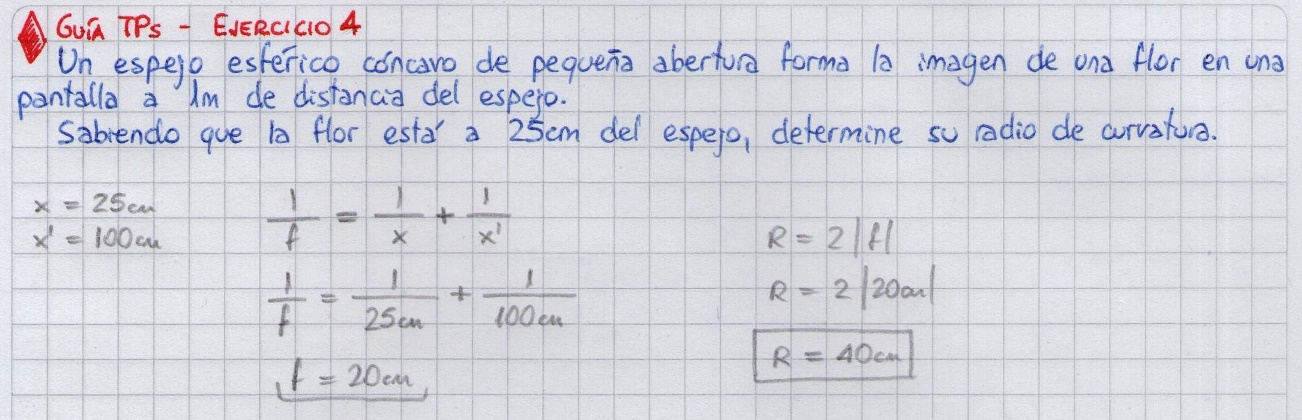 GUÍA TPs - EJERCICIO 4
Un espejo esférico cóncavo de pequeña abertura forma la imagen de una flor en una
pantalla a 1m de distancia del espejo.
Sabiendo que la flor está a 25cm del espejo, determine su radio de curvatura.
x = 25cm
x' = 100cm
1/f = 1/x + 1/x'
1/f = 1/25cm + 1/100cm
f = 20cm
R = 2 |f|
R = 2 |20cm|
R = 40cm